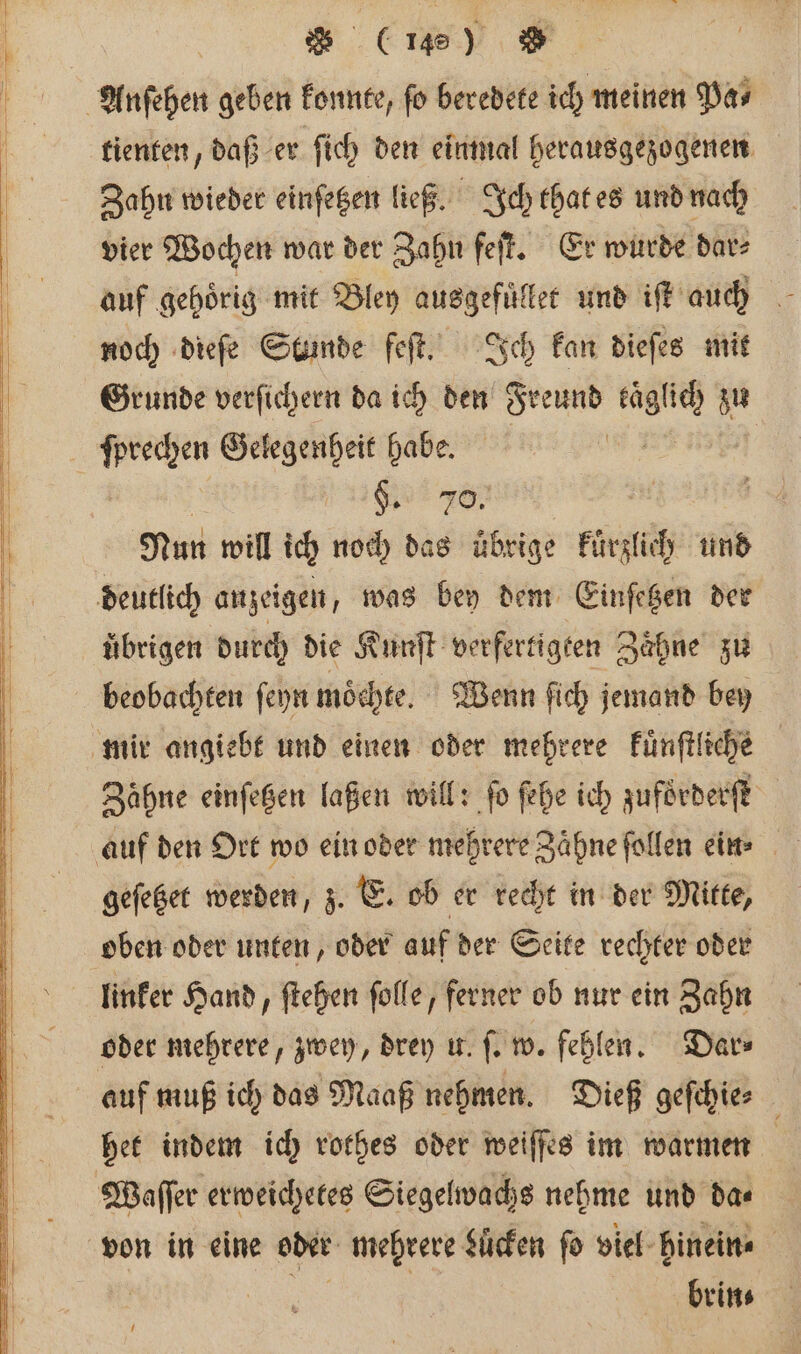 ❀ ( 140 ) ❀
Anſehen geben konnte, ſo beredete ich meinen Pa⸗
tienten, daß er ſich den einmal herausgezogenen
Zahn wieder einſetzen ließ. Ich that es und nach
vier Wochen war der Zahn feſt. Er wurde dar⸗
auf gehoͤrig mit Bley ausgefuͤllet und iſt auch
noch dieſe Stunde feſt. Ich kan dieſes mit
Grunde verſichern da ich den Freund taͤglich zu
ſprechen Gelegenheit habe.
§. 70.
Nun will ich noch das uͤbrige kuͤrzlich und
deutlich anzeigen, was bey dem Einſetzen der
uͤbrigen durch die Kunſt verfertigten Zaͤhne zu
beobachten ſeyn moͤchte. Wenn ſich jemand bey
mir angiebt und einen oder mehrere kuͤnſtliche
Zaͤhne einſetzen laßen will: ſo ſehe ich zufoͤrderſt
auf den Ort wo ein oder mehrere Zaͤhne ſollen ein⸗
geſetzet werden, z. E. ob er recht in der Mitte,
oben oder unten, oder auf der Seite rechter oder
linker Hand, ſtehen ſolle, ferner ob nur ein Zahn
oder mehrere, zwey, drey u. ſ. w. fehlen. Dar⸗
auf muß ich das Maaß nehmen. Dieß geſchie⸗
het indem ich rothes oder weiſſes im warmen
Waſſer erweichetes Siegelwachs nehme und da⸗
von in eine oder mehrere Luͤcken ſo viel hinein⸗
brin⸗